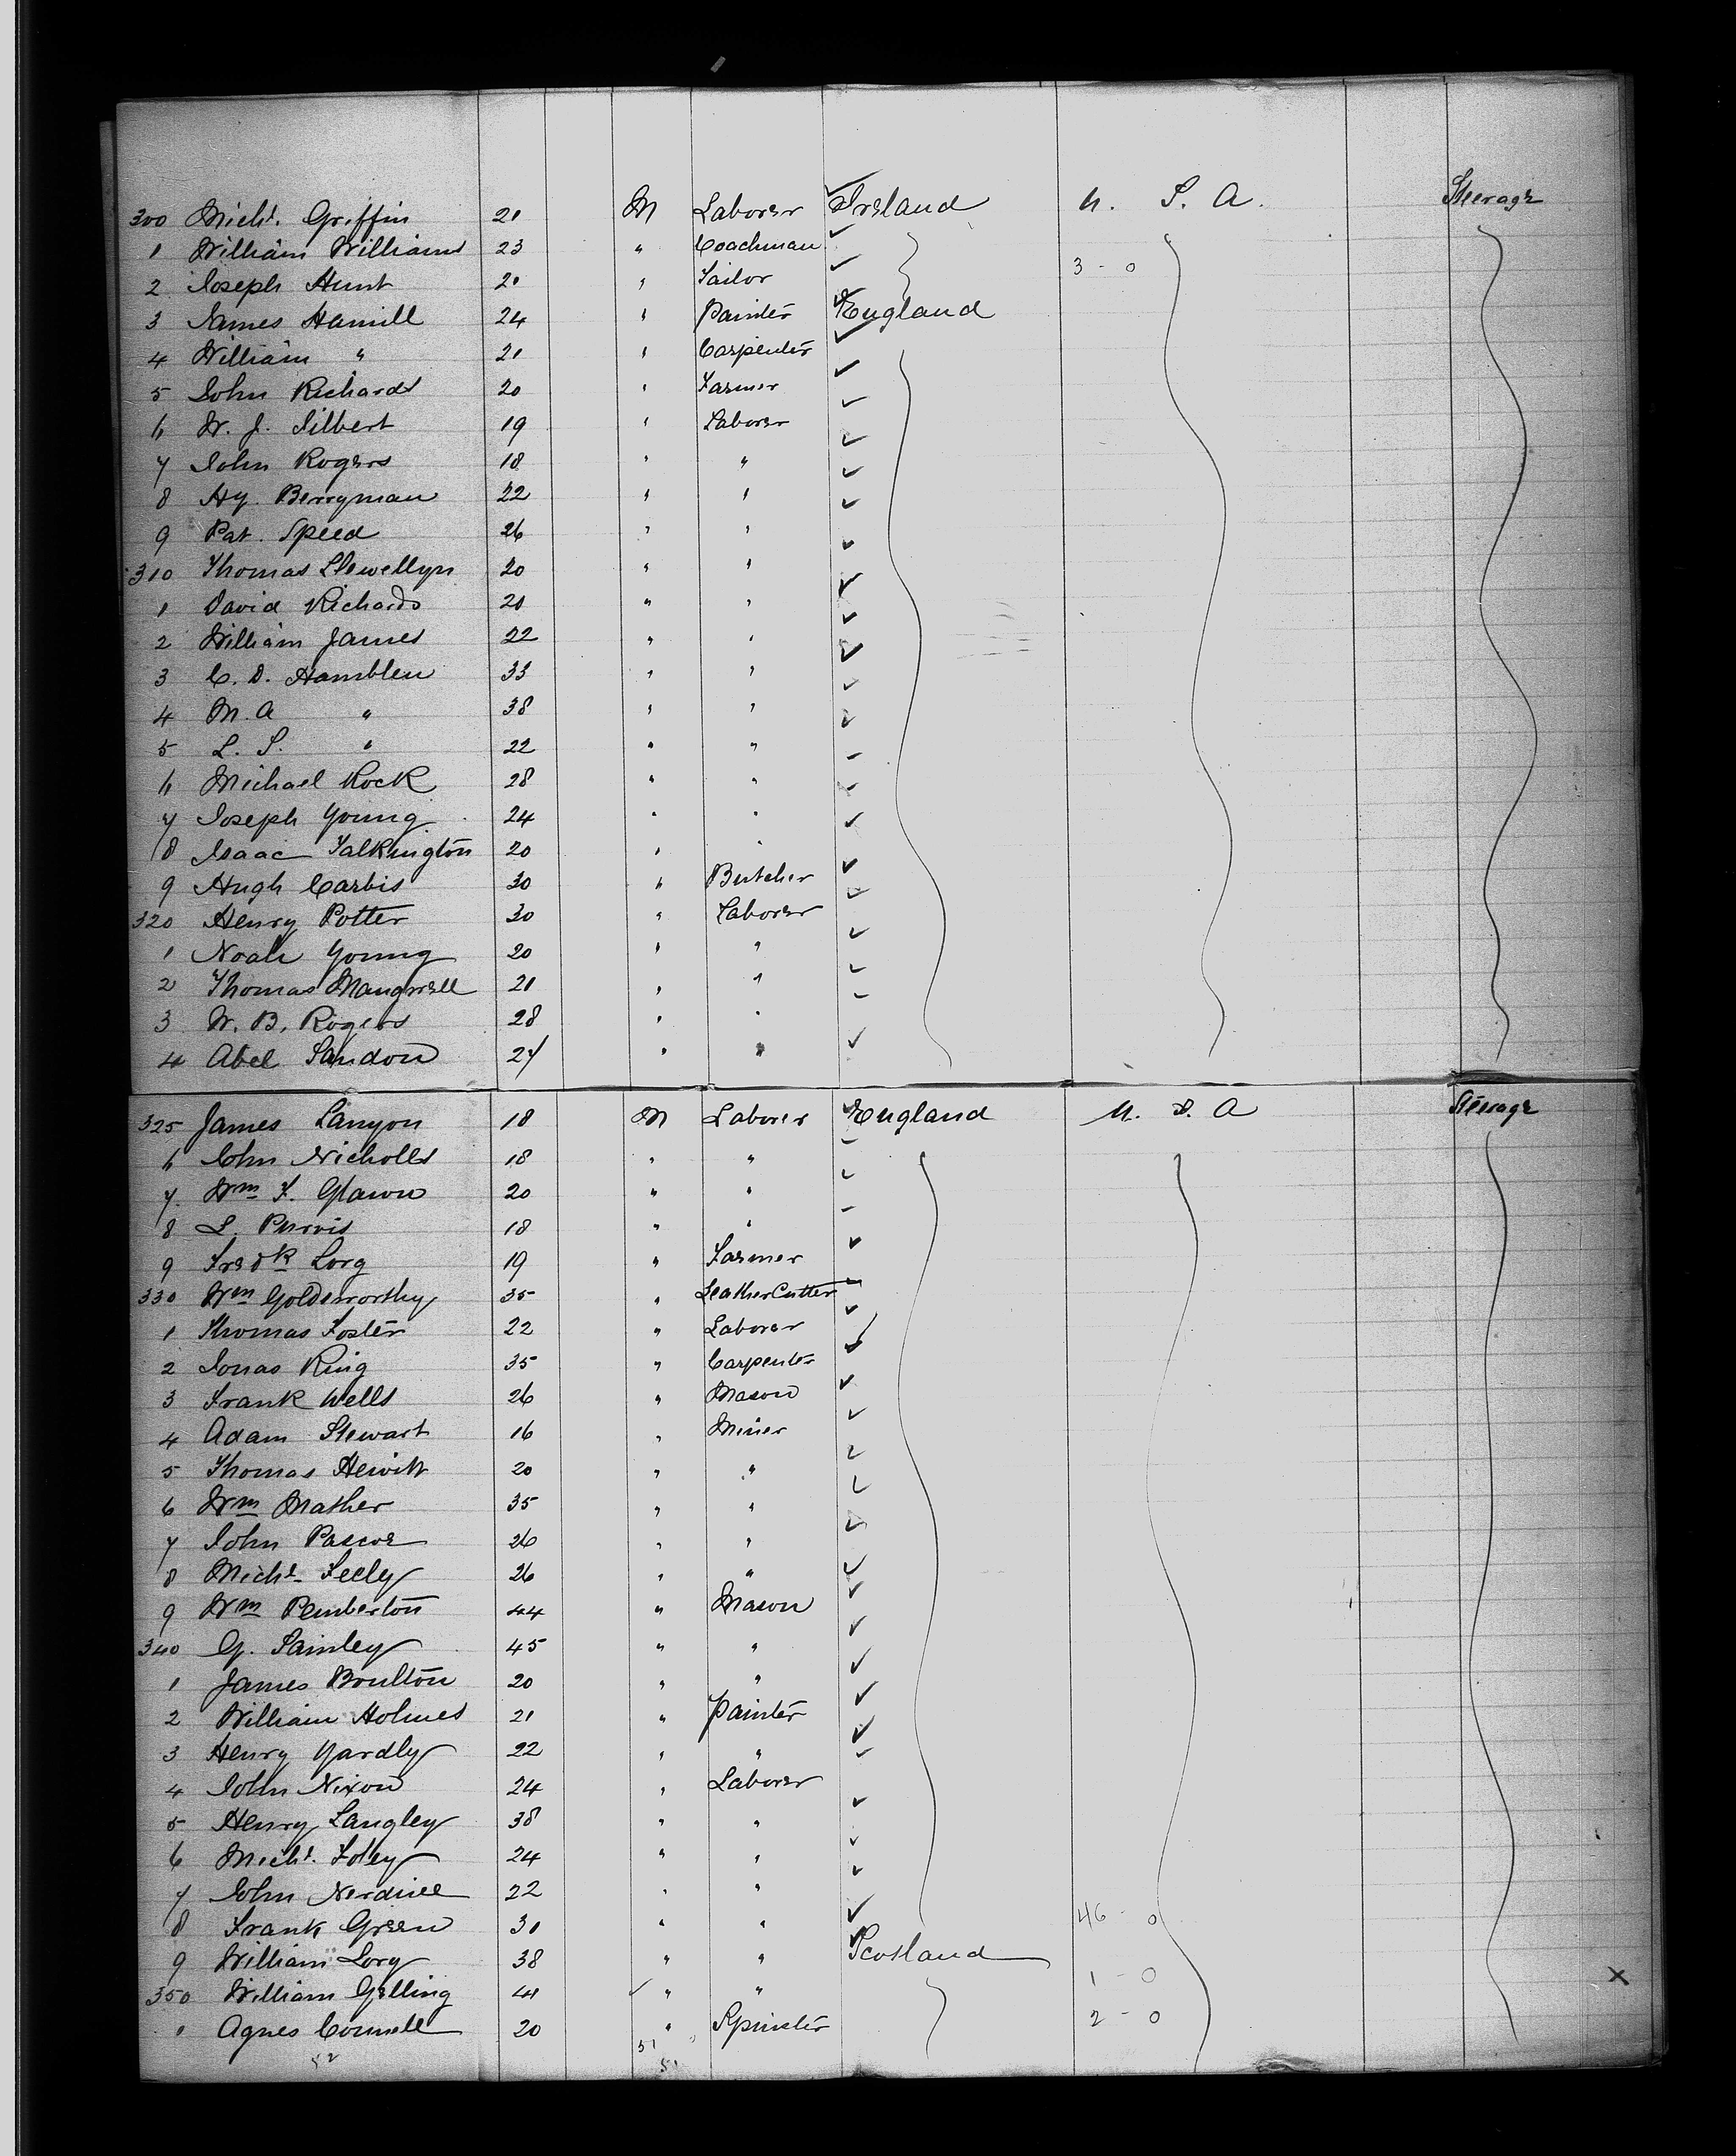 300 Michl. Griffin 21 M Laborer Ireland U. S. A. Steerage
1 William Williams 23 " Coachman
2 Joseph Hunt 21 " Tailor 3 - 0
3 James Hamill 24 " Painter England
4 William " 21 " Carpenter
5 John Richards 20 " Farmer
6 W. J. Silbert 19 " Laborer
7 John Rogers 18 " "
8 Hy. Berryman 22 " "
9 Pat. Speed 26 " "
310 Thomas Llewellyn 20 " "
1 David Richards 20 " "
2 William James 22 " "
3 C. D. Hamblen 33 " "
4 M. A " 38 " "
5 L. S. " 22 " "
6 Michael Rock 28 " "
7 Joseph Young 24 " "
8 Isaac Talkington 20 " "
9 Hugh Carbis 30 " Butcher
320 Henry Potter 30 " Laborer
1 Noah Young 20 " "
2 Thomas 21 " "
3 W. B. Rogers 28 " "
4 Abel Sandow 27 " "
325 James Lanyon 18 M Laborer England U. S. A Steerage
6 John Nicholls 18 " "
7 Wm T. 20 " "
8 L. Purvis 18 " "
9 Fredk Lorg 19 " Farmer
330 Wm Goldsworthy 35 " Leather Cutter
1 Thomas Foster 22 " Laborer
2 Jonas King 35 " Carpenter
3 Frank Wells 26 " Mason
4 Adam Stewart 16 " Miner
5 Thomas Hewitt 20 " "
6 Wm Mather 35 " "
7 John Pascoe 26 " "
8 Michl Feely 26 " "
9 Wm Pemberton 44 " Mason
340 G. 45 " "
1 James Boulton 20 " "
2 William Holmes 21 " Painter
3 Henry Yardly 22 " "
4 John Nixon 24 " Laborer
5 Henry Langley 38 " "
6 Michl. Foley 24 " "
7 John 22 " "
8 Frank Green 30 " " 46 - 0
9 William Lory 38 " " Scotland
350 William Gelling 41 " " 1 - 0 X
1 Agnes Connell 20 " Spinster 2 - 0
52 51 51